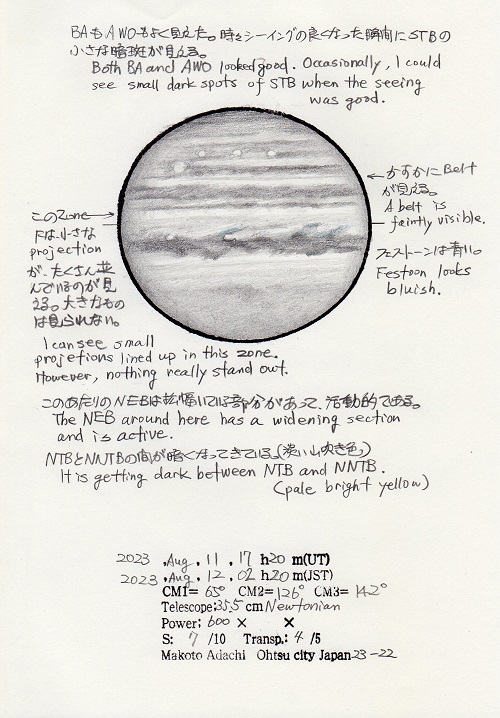 BAもAWOもよく見えた。時々シーイングの良くなった瞬間にSTBの
小さな暗斑が見える。
Both BA and AWO looked good. Occasionally, I could
see small dark spots of STB when the seeing
was good.
かすかにBelt
が見える。
A belt is
faintly visible.
フェストーンは青い。
Festoon looks
bluish.
このZone
下は小さな
projection
が、たくさん並
んでいるのが見
える。大きなもの
は見られない。
I can see small
projetions lined up in this zone.
However, nothing really stand out.
このあたりのNEBは拡幅いている部分があって、活動的である。
The NEB around here has a widening section
and is active.
NTBとNNTBの間が暗くなってきている。(淡い山吹き色)
It is getting dark between NTB and NNTB.
(pale bright yellow)
2023 .Aug . 11 . 17 h20 m(UT)
2023 .Aug . 12 . 02 h20 m(JST)
CM1= 65° CM2= 126° CM3= 142°
Telescope;35.5 cm Newtonian
Power; 600 × ×
S: 7 /10 Transp.: 4 /5
Makoto Adachi Ohtsu city Japan 23-22